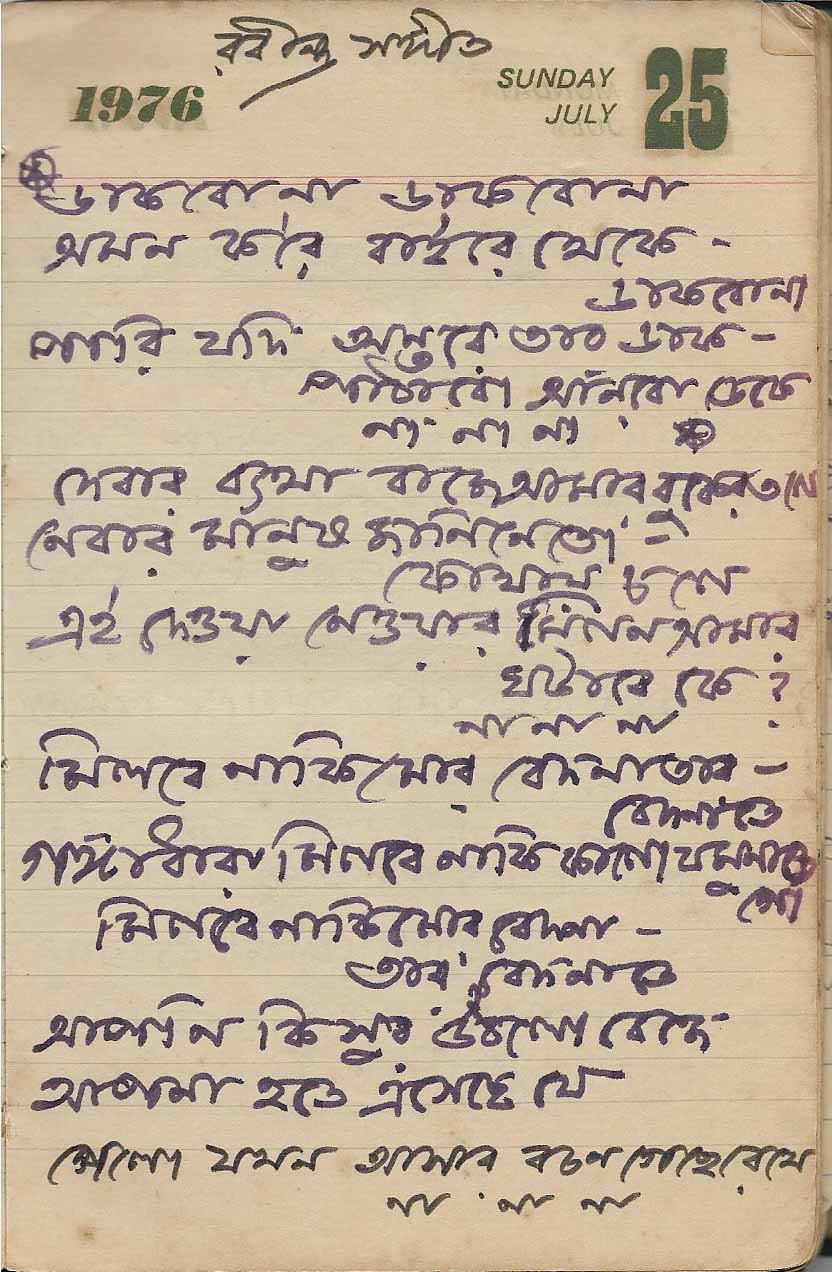 রবীন্দ্র সঙ্গীত
1976
SUNDAY
JULY
25
ডাকবোনা ডাকবোনা
অমন করে বাইরে থেকে -
ডাকবোনা
পারি যদি অন্তরে তার ডাক -
পাঠাবো আনবো ডেকে
না না না
দেবার ব্যথা বাজে আমার বুকের তলে
নেবার মানুষ জানিনেতো -
কোথায় চলে
এই দেওয়া নেওয়ার মিলন আমার
ঘটাবে কে?
না না না
মিলবে নাকি মোর বেদনা তার -
বেদনাতে
গঙ্গাধারা মিলবে নাকি কালো যমুনাতে
গো
মিলবে নাকি মোর বেদনা -
তার বেদনাতে
আপনি কি সুর উঠলো বেজে
আপনা হতে এসেছে যে
গেলো যখন আশার বচন গেছে রেখে
না না না